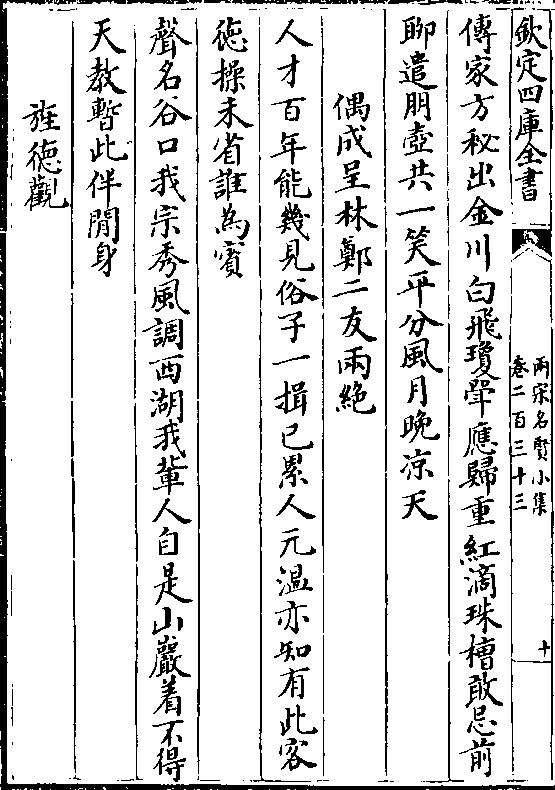 欽定四庫全書
兩宋名賢小集
卷二百三十三
十
傳家方秘出金川白飛瓊斝應歸重紅滴珠槽敢忌前
聊遣朋壺共一笑平分風月晚凉天
偶成呈林鄭二友兩絶
人才百年能幾見俗子一揖已累人元温亦知有此客
徳操未省誰為賓
聲名谷口我宗秀風調西湖我輩人自是山巖着不得
天教暫此伴閒身
旌徳觀